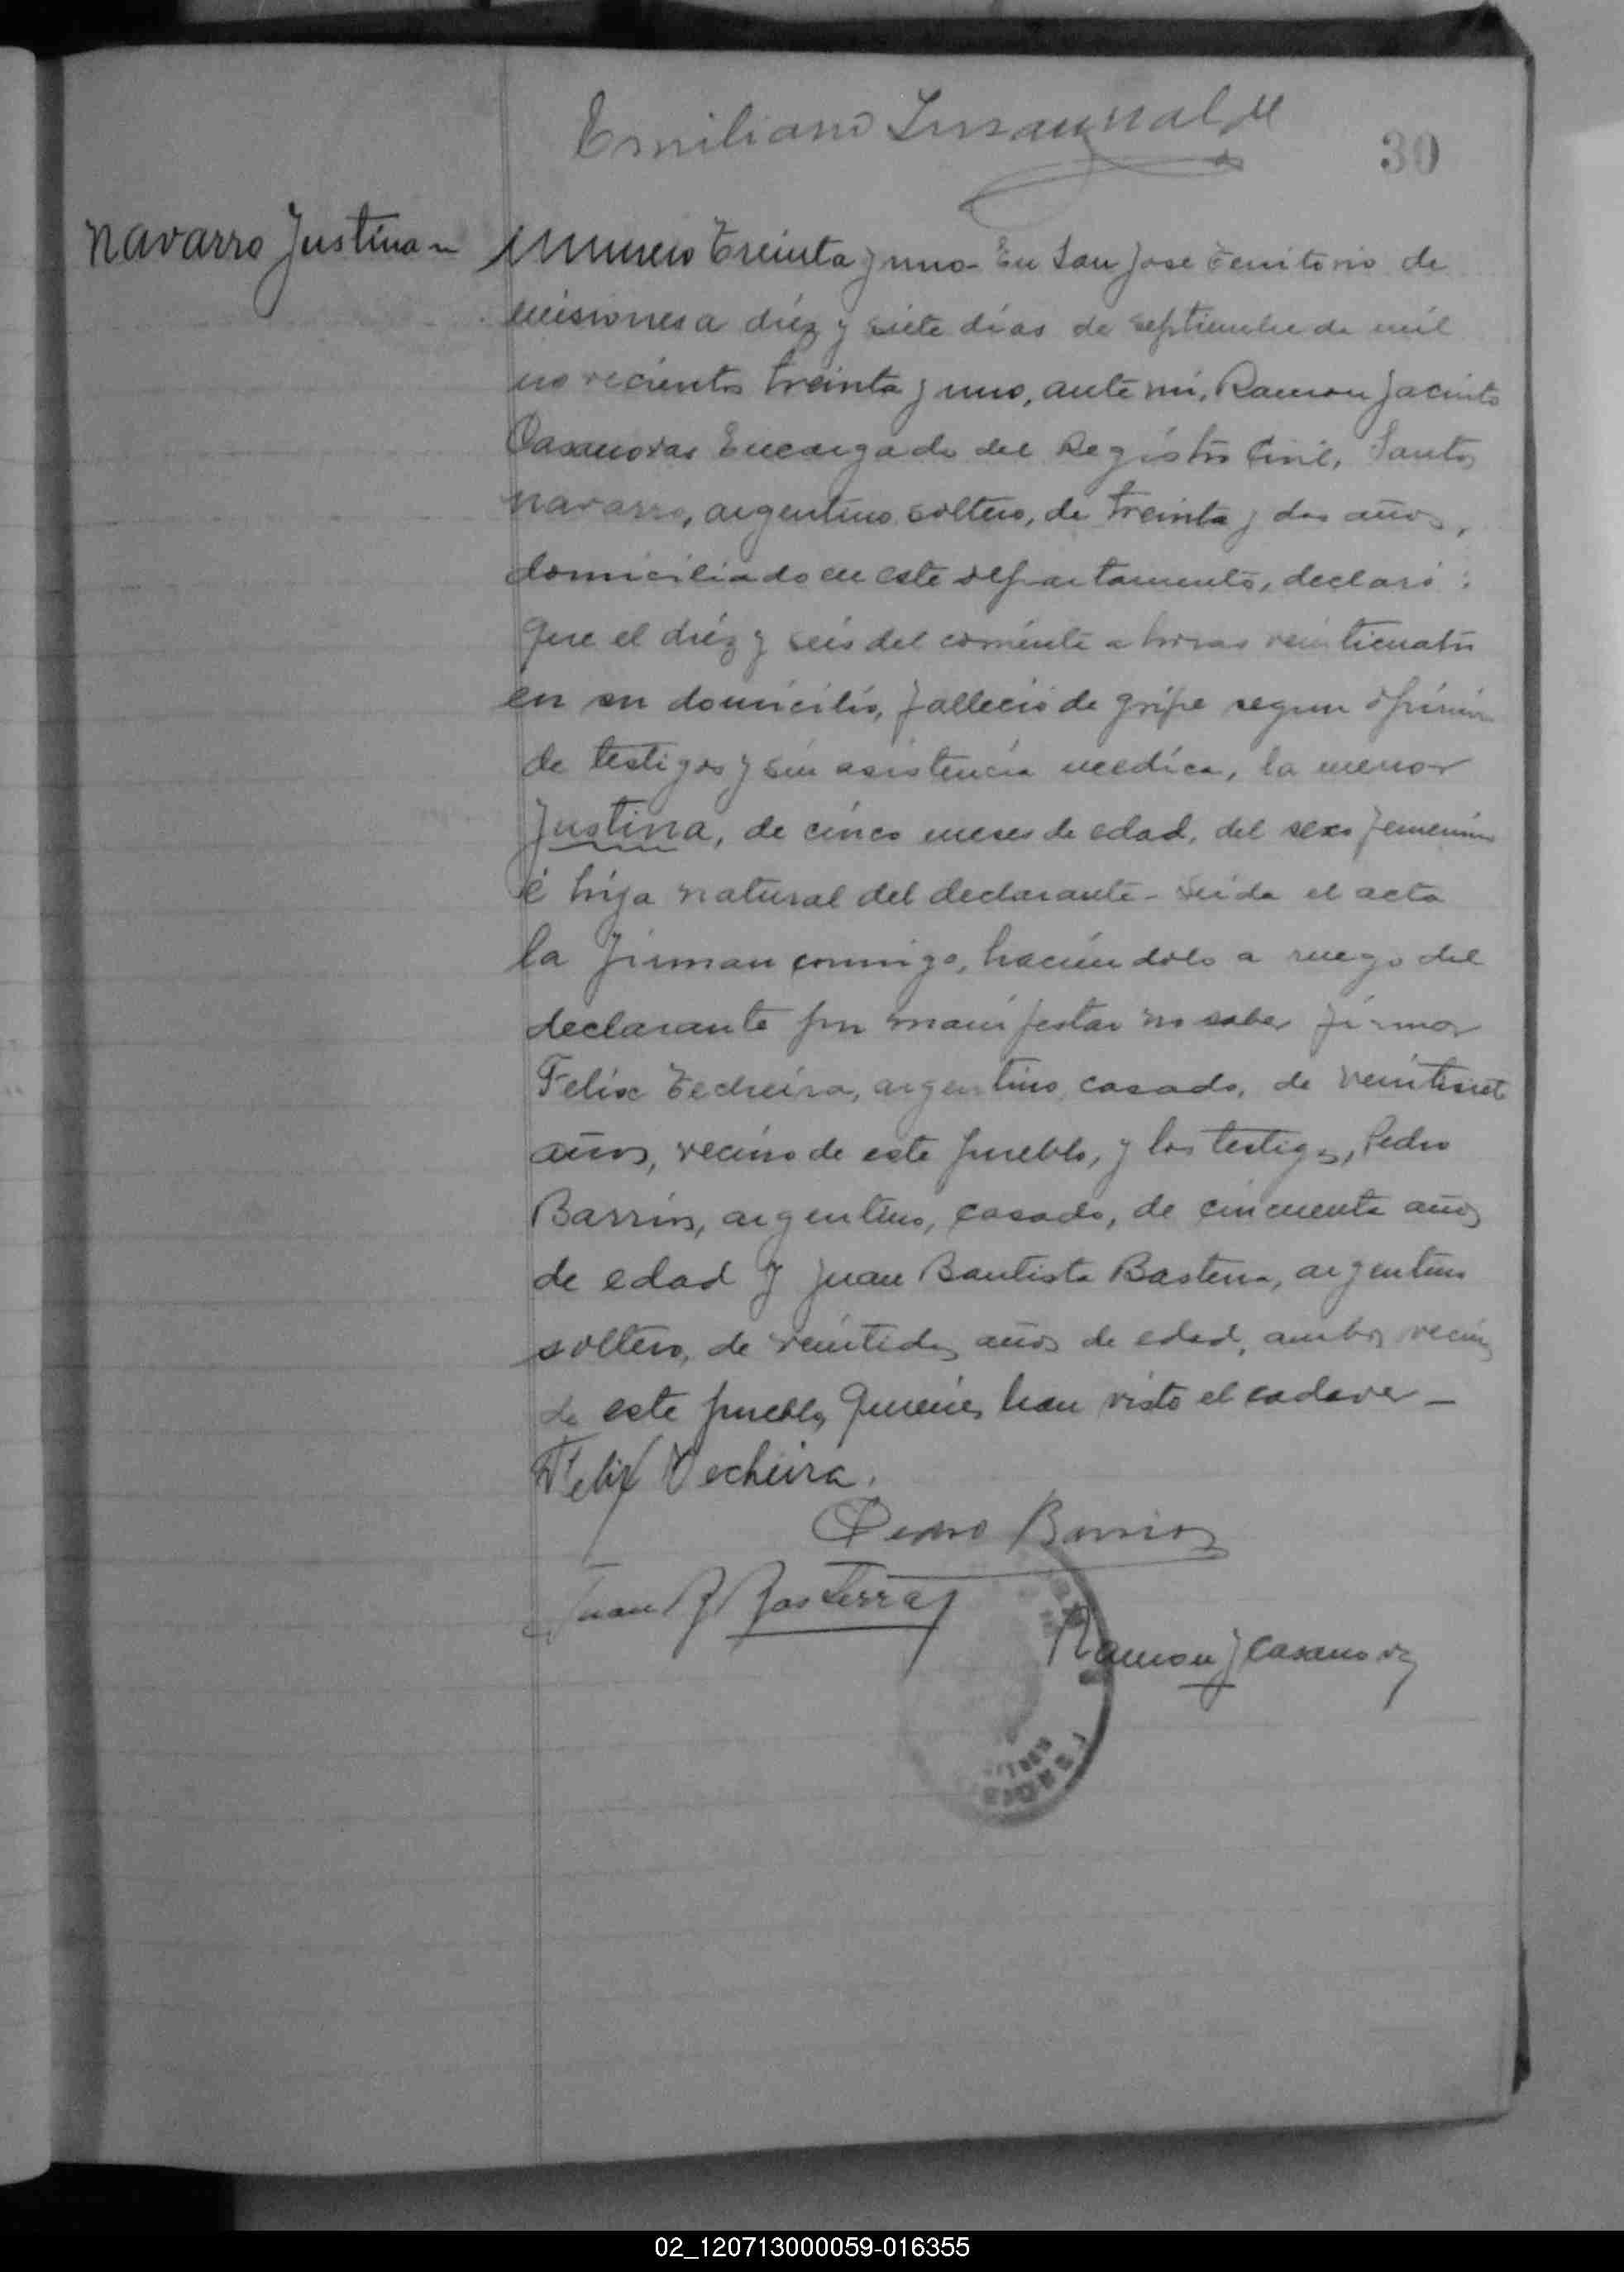 Emiliano
30
Navarro Justina
Numero Treinta y uno - En San Jose Territorio de
Misiones a diez y siete días de septiembre de mil
novecientos treinta y uno, ante mi, Ramon Jacinto
Casanovas Encargado del Registro Civil, Santos
Navarro, argentino soltero, de treinta y dos años,
domiciliado en este departamento, declaró:
Que el diéz y seis del corriente a horas veinticuatro
en su domicilio, falleció de gripe segun opinión
de testigos y sin asistencia medica, la menor
Justina, de cinco meses de edad, del sexo femenino
é hija natural del declarante - Leida el acta
la firman conmigo, haciendolo a ruego del
declarante por manifestar no saber firmar
Felix Techeira, argentino, casado, de veintisiete
años, vecino de este pueblo, y los testigos, Pedro
Barrios, argentino, casado, de cincuenta años
de edad y Juan Bautista Basterra, argentino
soltero, de veintidos años de edad, ambos vecinos
de este pueblo, quienes han visto el cadaver -
Felix Techeira.
Pedro Barrios
Juan B Basterra
Ramon J Casanovas
02_120713000059-016355